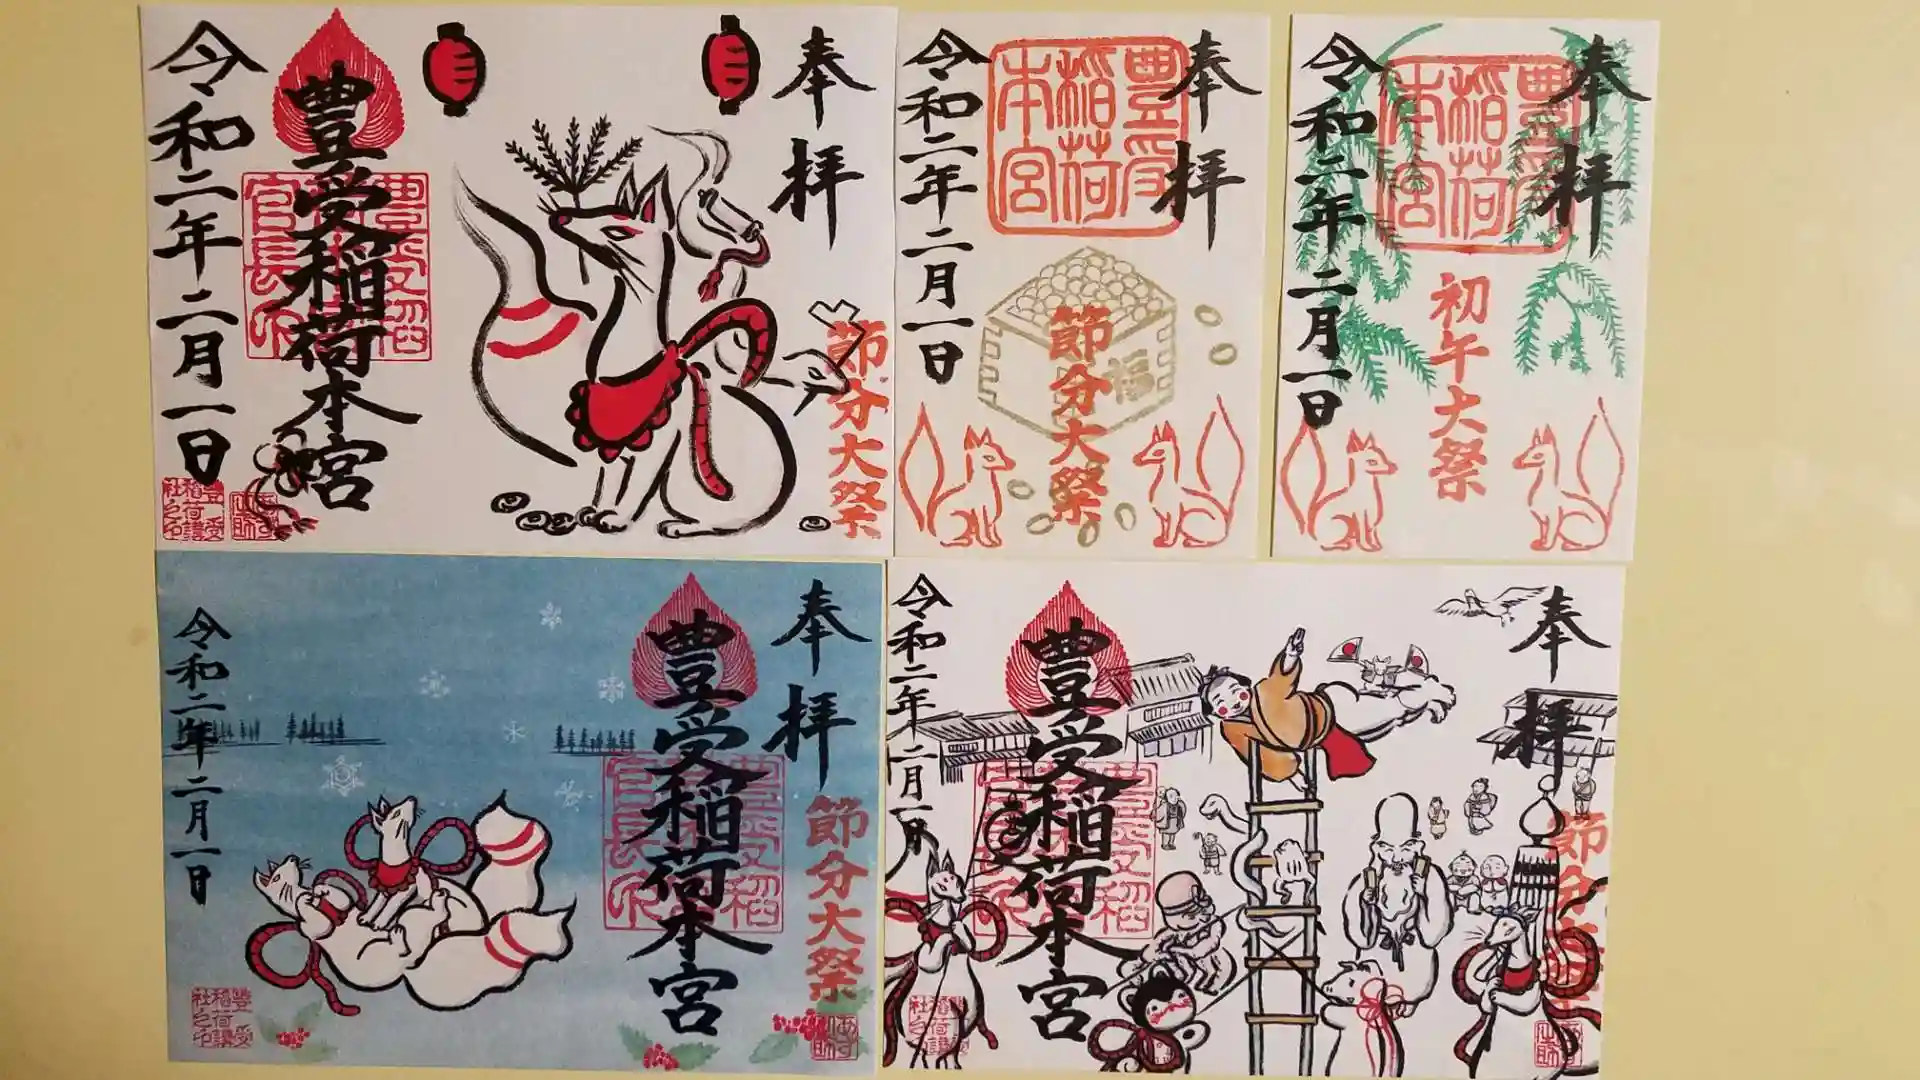 奉拝
節分大祭
豊受稲荷本宮
令和二年二月一日
奉拝
豊受
稲荷
本宮
節分大祭
福
令和二年二月一日
奉拝
豊受
稲荷
本宮
初午大祭
令和二年二月一日
奉拝
節分大祭
豊受稲荷本宮
令和二年二月一日
奉拝
節分大祭
豊受稲荷本宮
令和二年二月一日